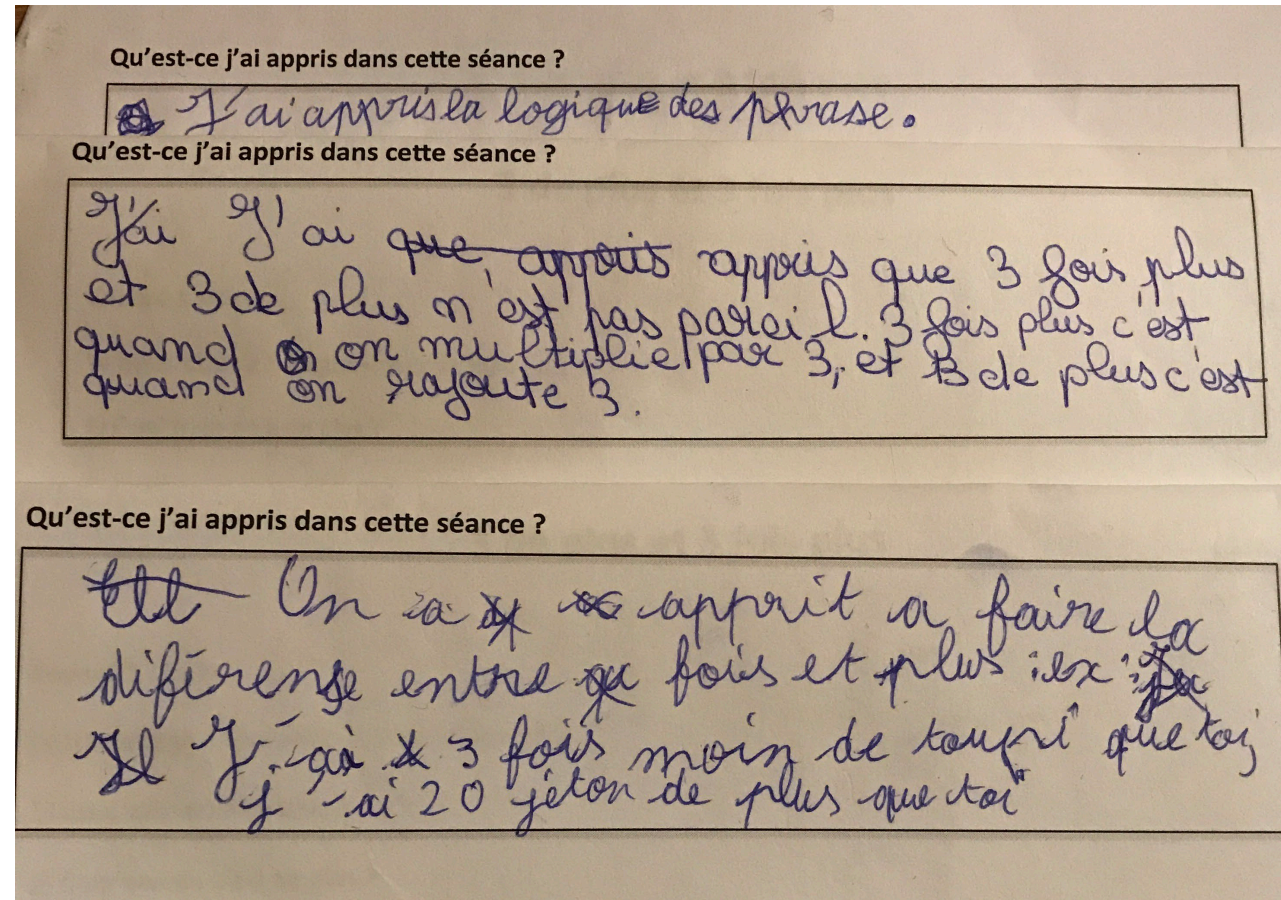 Qu’est-ce j’ai appris dans cette séance ?
J'ai appris la logique des phrase.
Qu’est-ce j’ai appris dans cette séance ?
J'ai J'ai que appris appris que 3 fois plus
et 3 de plus n'est pas pareil. 3 fois plus c'est
quand on multiplie par 3, et 3 de plus c'est
quand on rajoute 3.
Qu’est-ce j’ai appris dans cette séance ?
On a apprit a faire la
diférense entre fois et plus : ex :
J'ai 3 fois moin de toupi que toi
j'ai 20 jéton de plus que toi